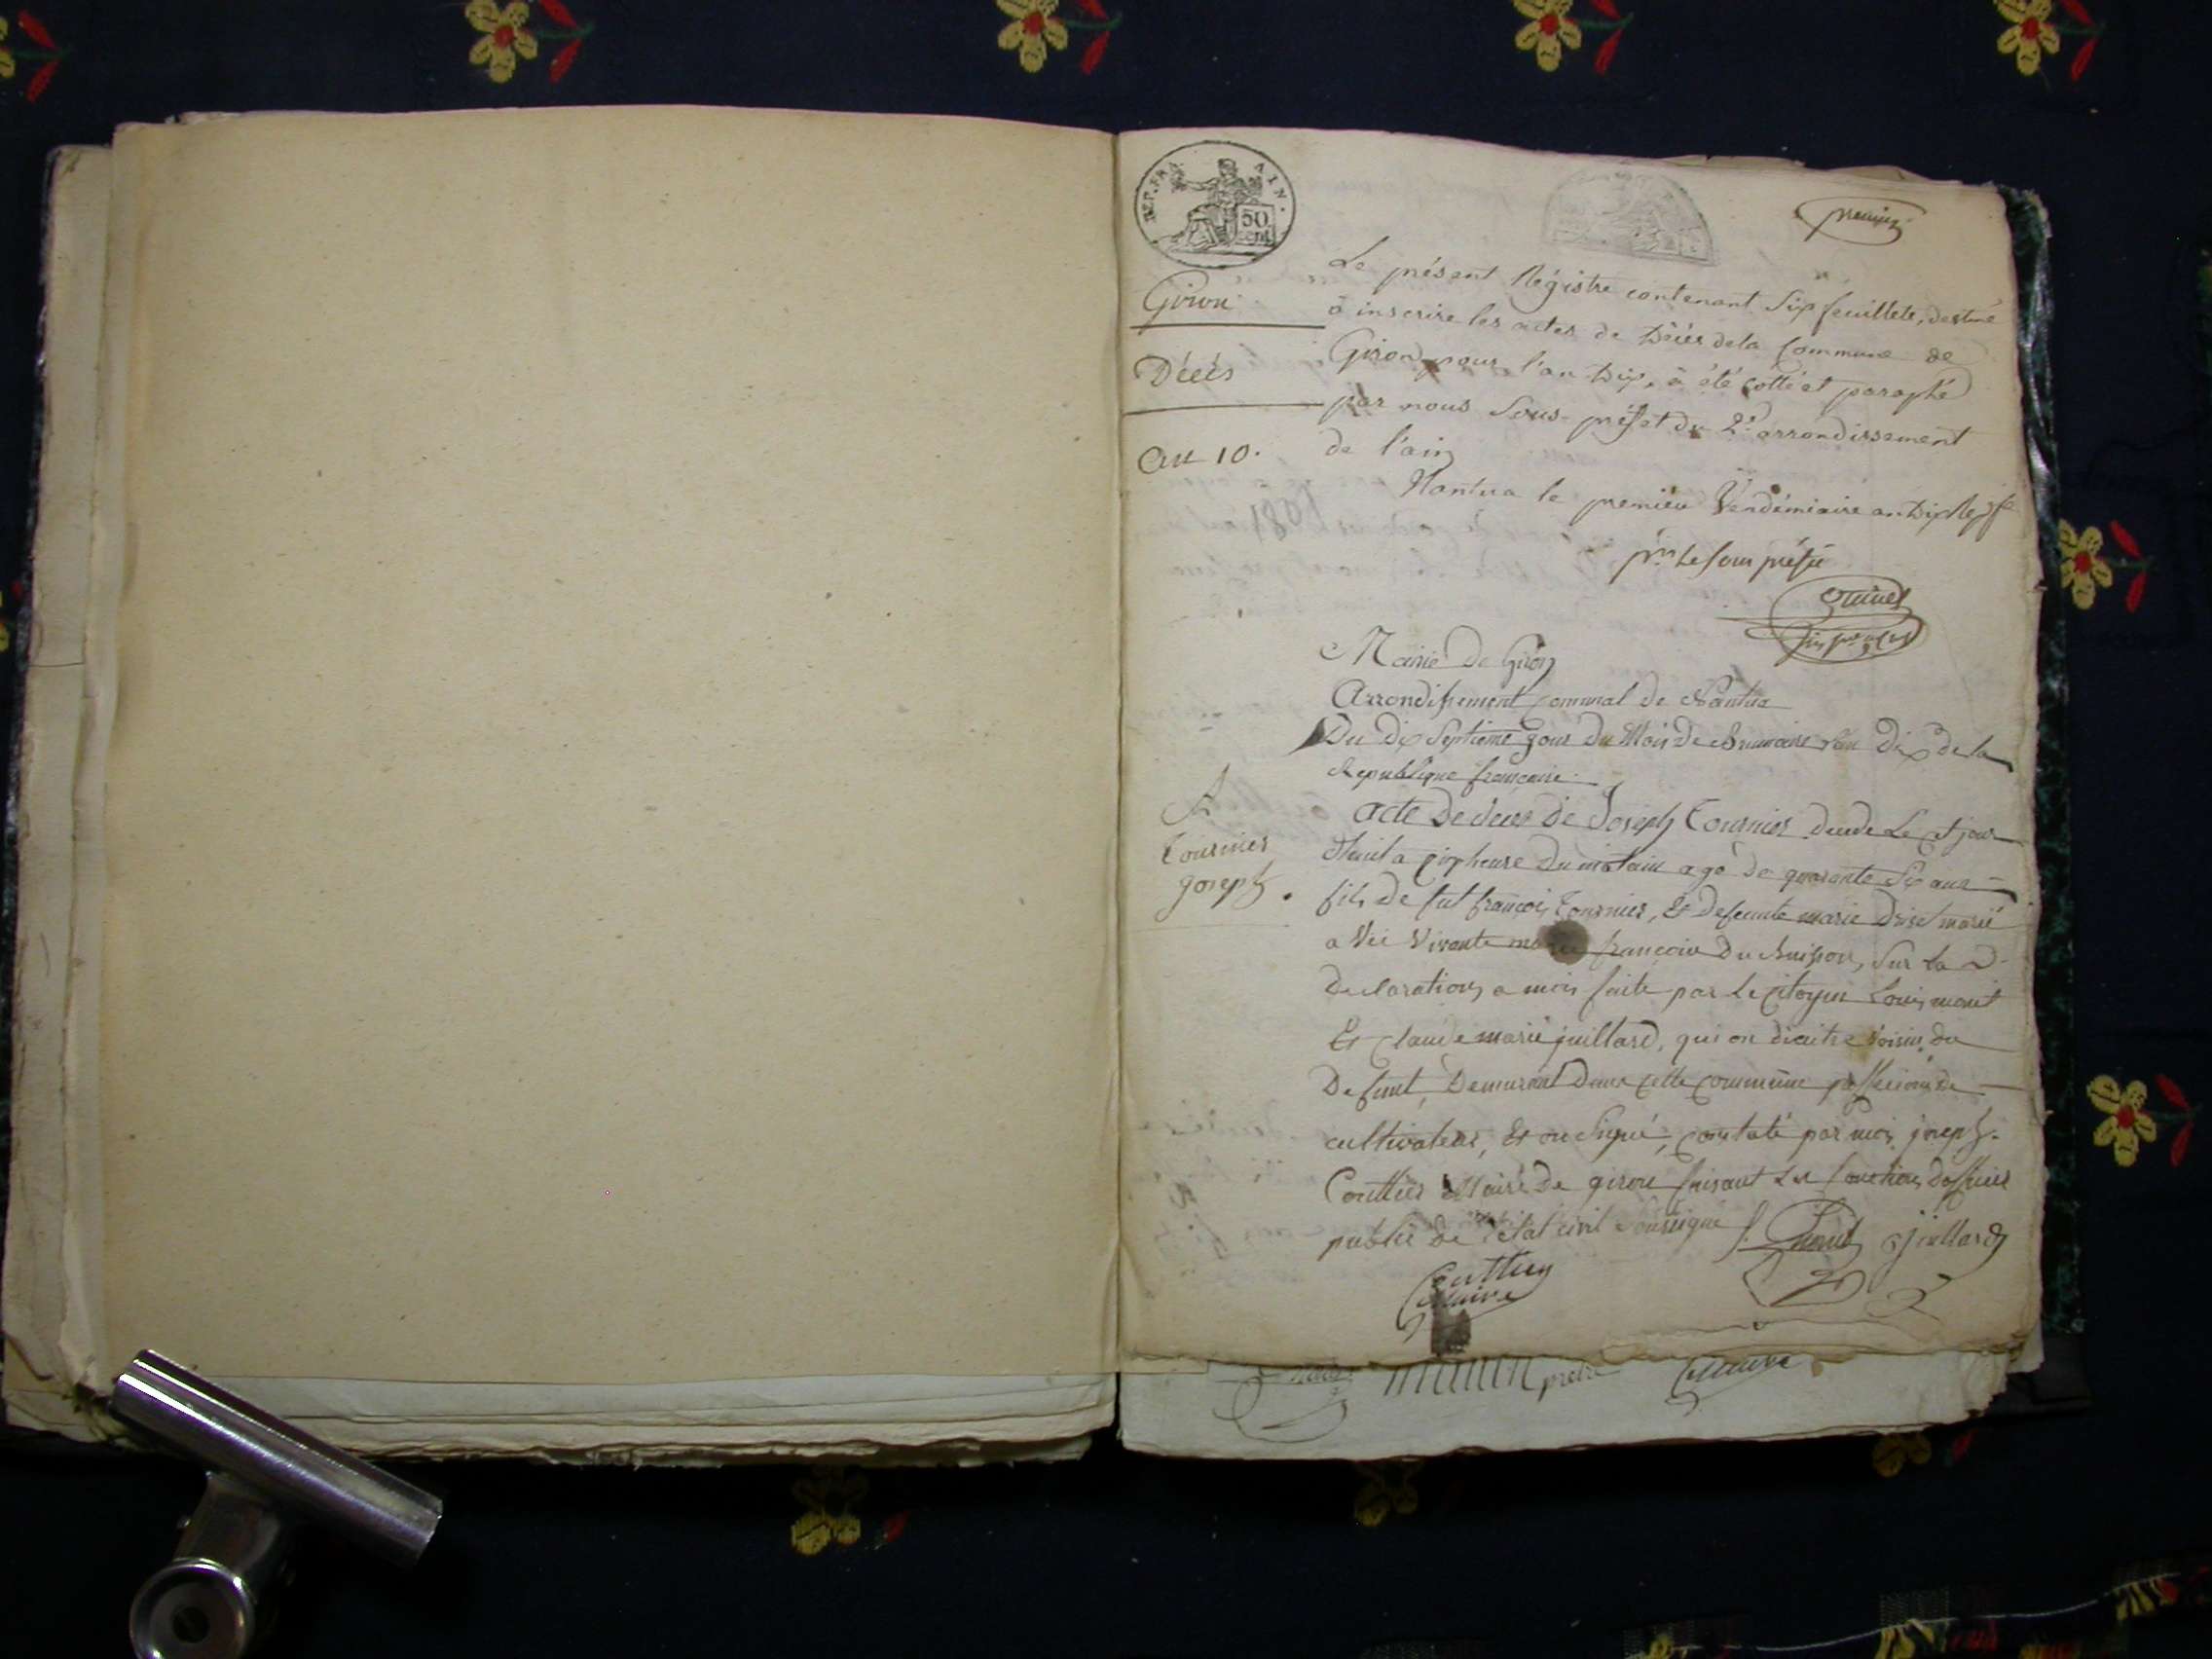 REP. FRA
AIN.
50
cent
premier
Giron
Décès
an 10.
Le présent Régistre contenant Six feuillets, destiné
à inscrire les actes de Décès de la Commune de
Giron pour l'an Dix, à été cotté et paraphé
par nous Sous-préfet du 2e. arrondissement
de l'ain
Nantua le premier Vendémiaire an Dix
pr. Le sous préfet
Mairie de Giron
Arrondissement communal de Nantua
Du Dix Septieme jour du Mois de Brumaire l'an Dix de la
Republique francaise
A
Tournier
joseph.
acte de deces de Joseph Tournier decede Le jour
a heure du matain agé de quarante Six ans
fils de fut francois Tournier, Et defeunte marie marié
a Vivante francoise Du buisson, Sur la d
Declaration, a moi faite par Le citoyen Louis
Et Claude marie juillard, qui on dicitre Voisin du
Defunt, Demurant Dans cette commune de
cultivateur, Et on Signé, constaté par moi joseph.
Couttier Maire de giron faisant Les fonctions
public de l'état civil Soussigné
Juillard
Couttier
Maire
pretre
maire